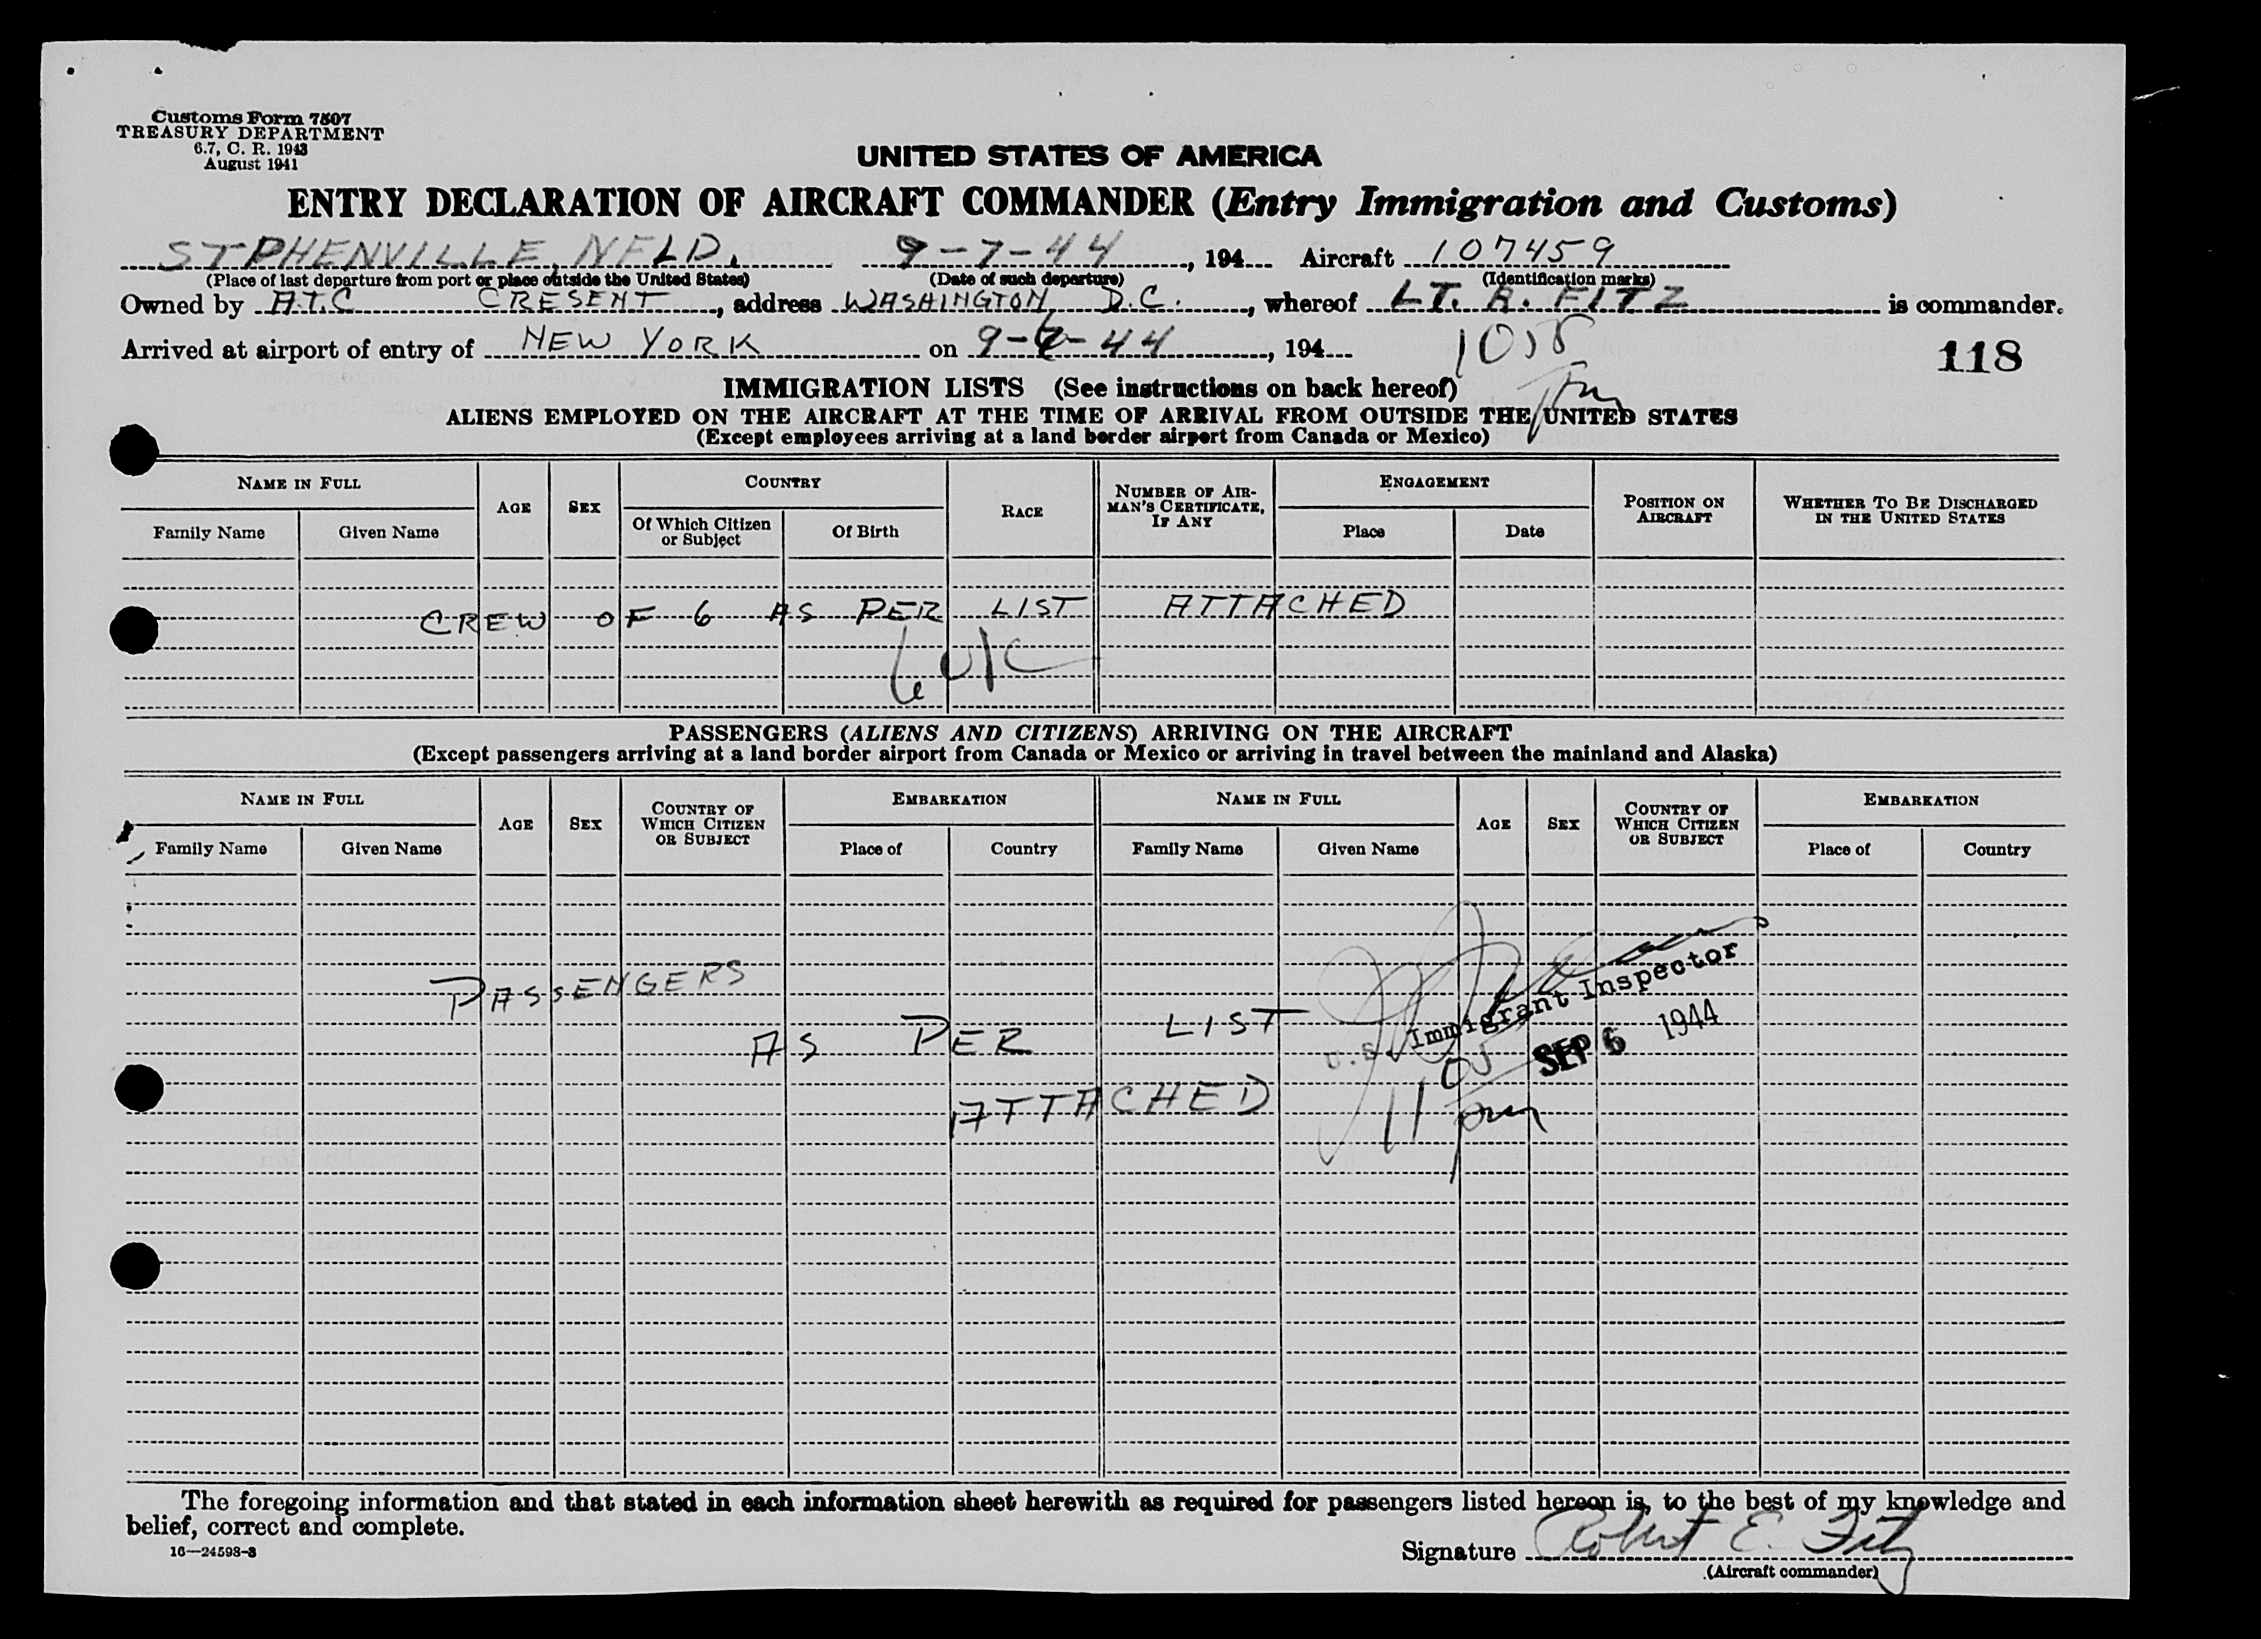 Customs Form 7507
TREASURY DEPARTMENT
6.7, C. R. 1943
August 1941
UNITED STATES OF AMERICA
ENTRY DECLARATION OF AIRCRAFT COMMANDER (Entry Immigration and Customs)
STPHENVILLE, NFLD. 9-7-44, 194 Aircraft 107459
(Place of last departure from port or place outside the United States) (Date of such departure) (Identification marks)
Owned by A.T.C CRESENT, address WASHINGTON D.C., whereof LT. R. FITZ is commander.
Arrived at airport of entry of NEW YORK on 9-6-44, 194
118
IMMIGRATION LISTS (See instructions on back hereof)
ALIENS EMPLOYED ON THE AIRCRAFT AT THE TIME OF ARRIVAL FROM OUTSIDE THE UNITED STATES
(Except employees arriving at a land border airport from Canada or Mexico)
NAME IN FULL AGE SEX COUNTRY RACE NUMBER OF AIRMAN'S CERTIFICATE, IF ANY ENGAGEMENT POSITION ON AIRCRAFT WHETHER TO BE DISCHARGED IN THE UNITED STATES
Family Name Given Name Of Which Citizen or Subject Of Birth Place Date
CREW OF 6 AS PER LIST ATTACHED
PASSENGERS (ALIENS AND CITIZENS) ARRIVING ON THE AIRCRAFT
(Except passengers arriving at a land border airport from Canada or Mexico or arriving in travel between the mainland and Alaska)
NAME IN FULL AGE SEX COUNTRY OF WHICH CITIZEN OR SUBJECT EMBARKATION NAME IN FULL AGE SEX COUNTRY OF WHICH CITIZEN OR SUBJECT EMBARKATION
Family Name Given Name Place of Country Family Name Given Name Place of Country
PASSENGERS
AS PER LIST
ATTACHED
U.S. Immigrant Inspector
SEP 6 1944
11 05 pm
The foregoing information and that stated in each information sheet herewith as required for passengers listed hereon is, to the best of my knowledge and
belief, correct and complete.
16—24598-3
Signature Robert E. Fitz
(Aircraft commander)